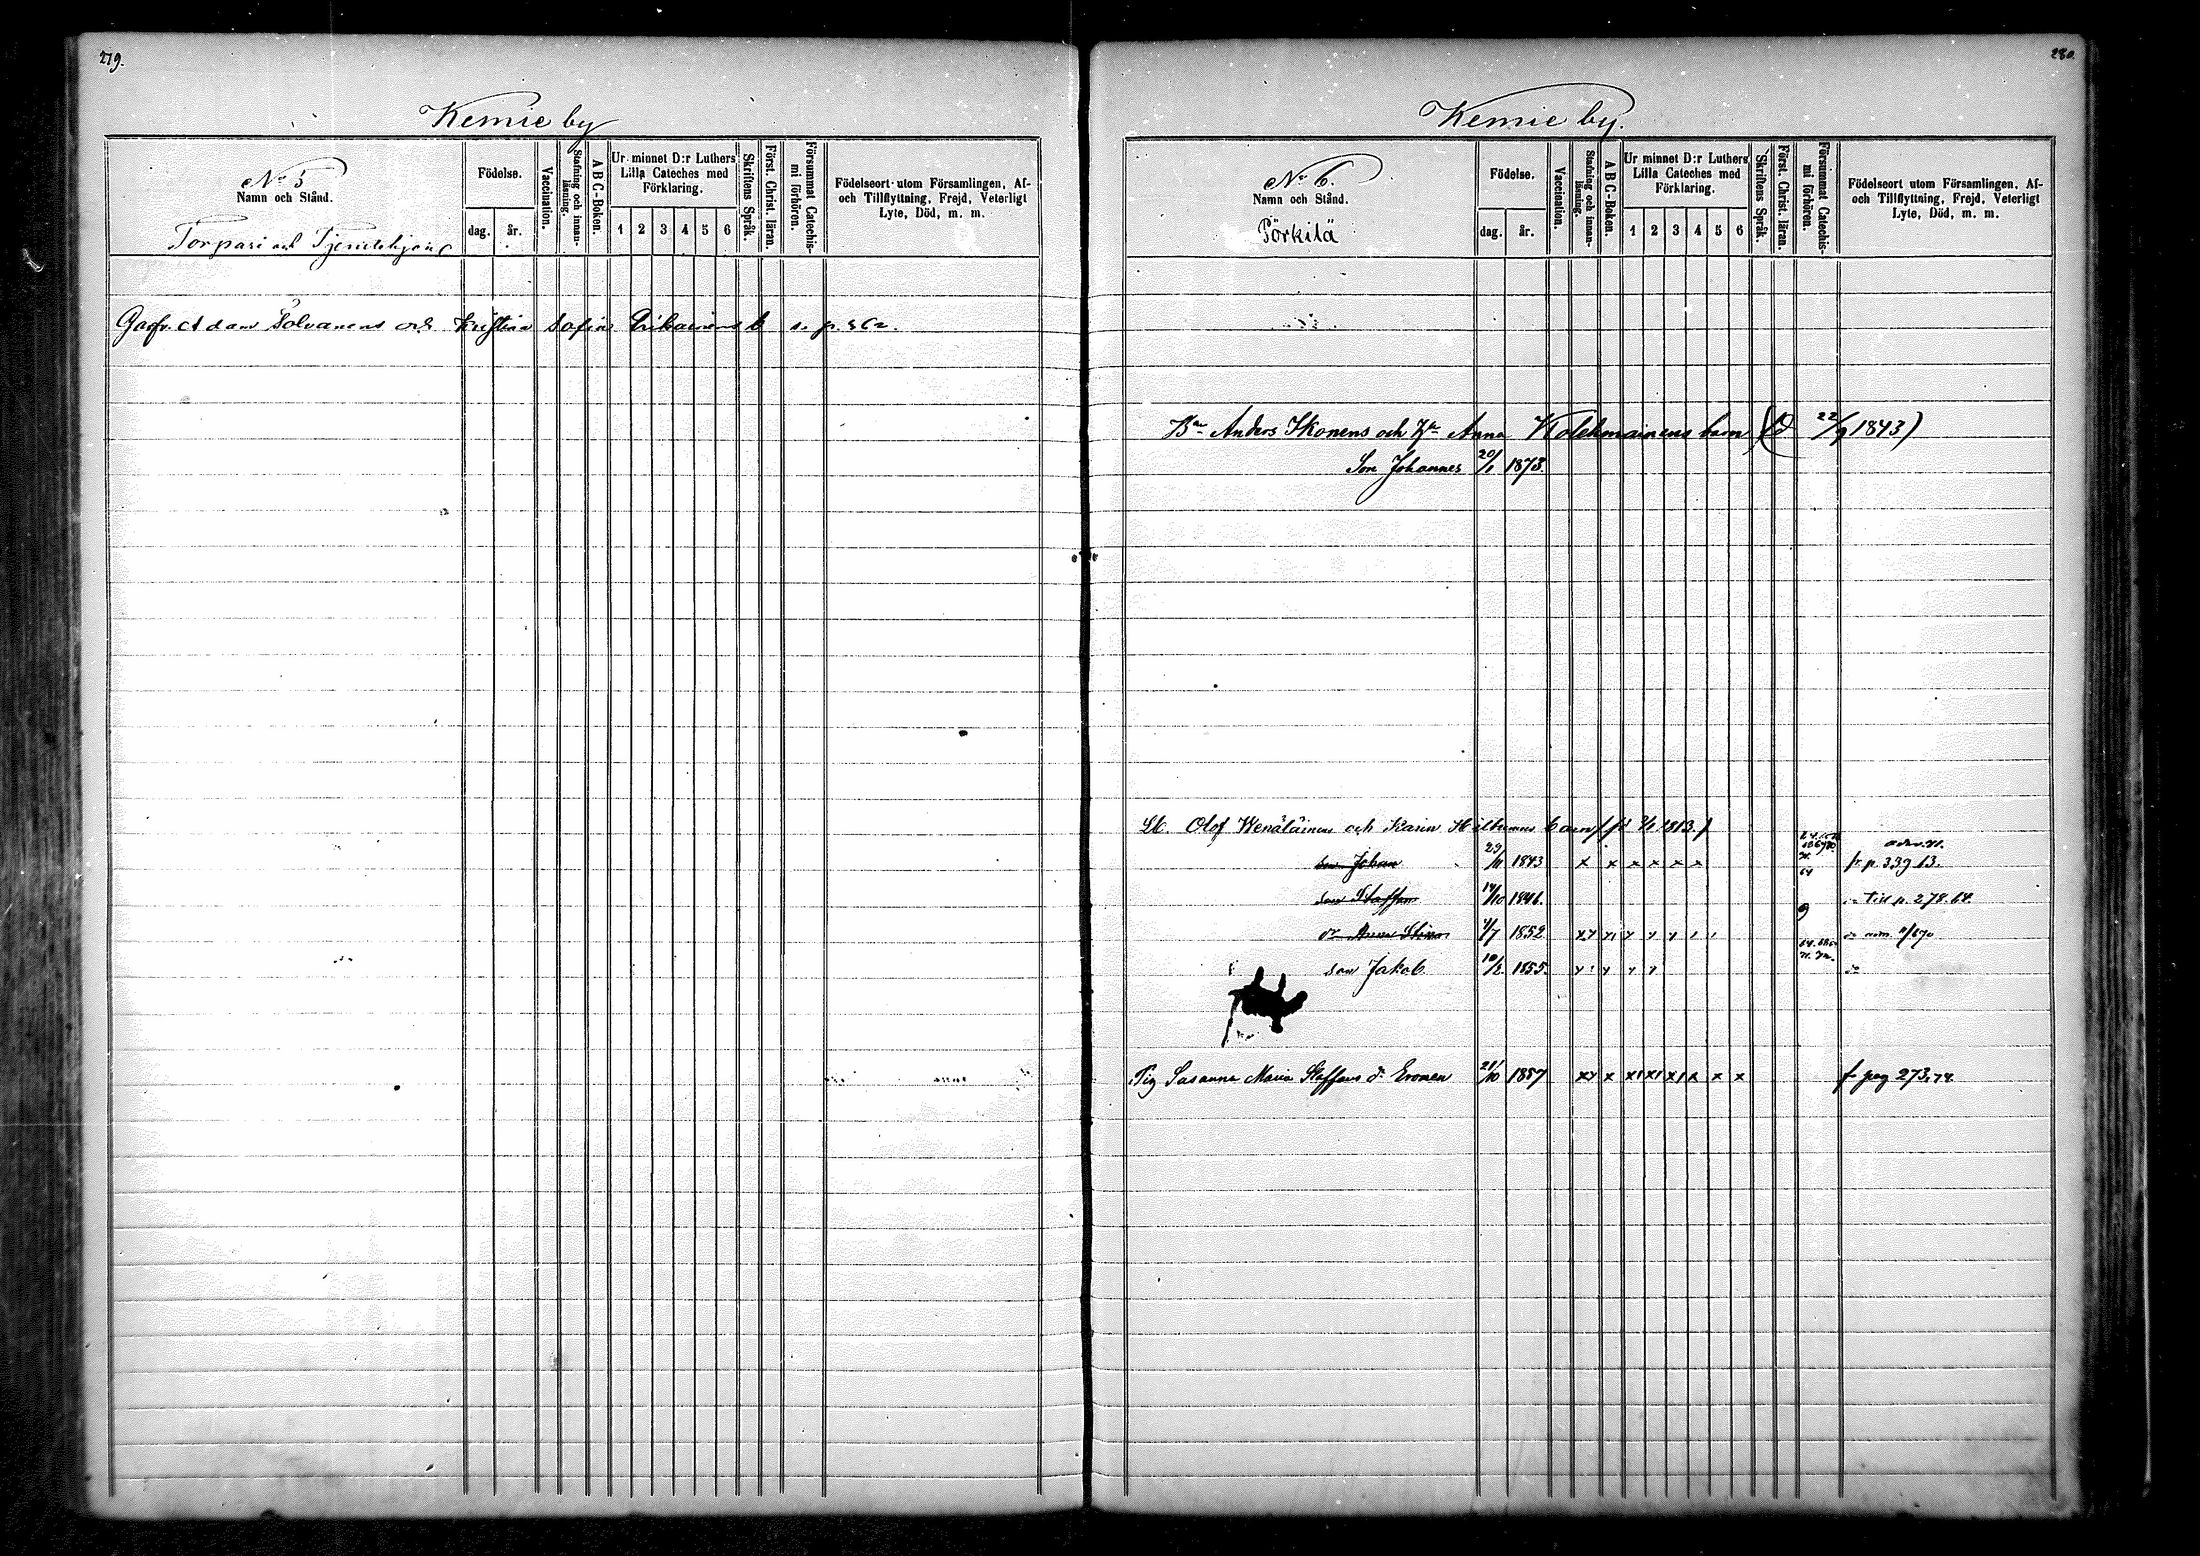 279.
Kemie by
No 5
Namn och Stånd.
Torpari och Tjenstehjon
Födelse.
dag. år.
Vaccination.
Stafning och innan-läsning.
A B C-Boken.
Ur minnet D:r Luthers Lilla Cateches med Förklaring.
1 2 3 4 5 6
Skriftens Språk.
Först. Christ. läran.
Försummat Catechis-mi förhören.
Födelseort utom Församlingen, Af- och Tillflyttning, Frejd, Veterligt Lyte, Död, m. m.
Adam Solvanens och Kristina Sofia b s. p. 362.
280.
Kemie by.
No 6.
Namn och Stånd.
Pörkilä
Födelse.
dag. år.
Vaccination.
Stafning och innan-läsning.
A B C-Boken.
Ur minnet D:r Luthers Lilla Cateches med Förklaring.
1 2 3 4 5 6
Skriftens Språk.
Först. Christ. läran.
Försummat Catechis-mi förhören.
Födelseort utom Församlingen, Af- och Tillflyttning, Frejd, Veterligt Lyte, Död, m. m.
Bn Anders Ikonens och Anna Kolehmainens barn ( 22/9 1843)
Son Johannes 20/1 1873.
Olof Wenäläinens och Karin barn 1813.)
son Johan 29/11 1843 x x x x x x fr p. 339.63.
son Staffan 14/10 1846. Till p. 278.64.
dr Anna Stina 4/7 1852
son Jakob. 10/2 1855.
Pig Susanna Maria Staffans dr Eronen 21/10 1857 fr pag 273,74.